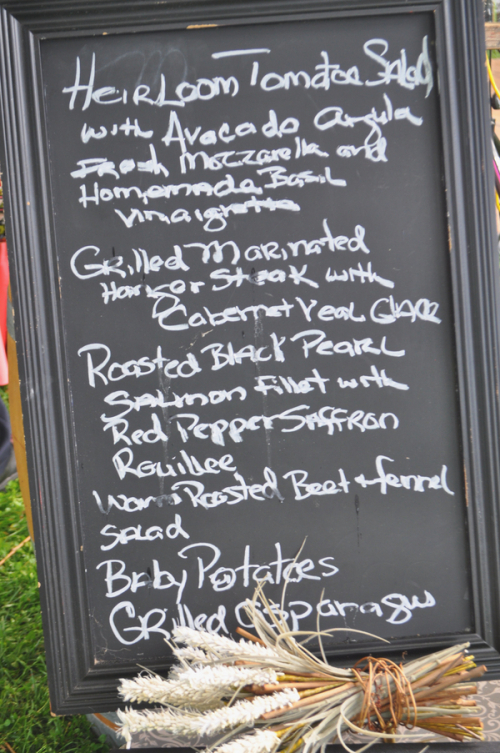 Heirloom Tomatoe Salad
with Avocado Arugula
Fresh Mozzarella and
Homemade Basil
Vinaigrette
Grilled Marinated
Hanger Steak with
Cabernet Veal Glace
Roasted Black Pearl
Salmon Fillet with
Red Pepper Saffron
Rouillee
Warm Roasted Beet + fennel
Salad
Baby Potatoes
Grilled Asparagus